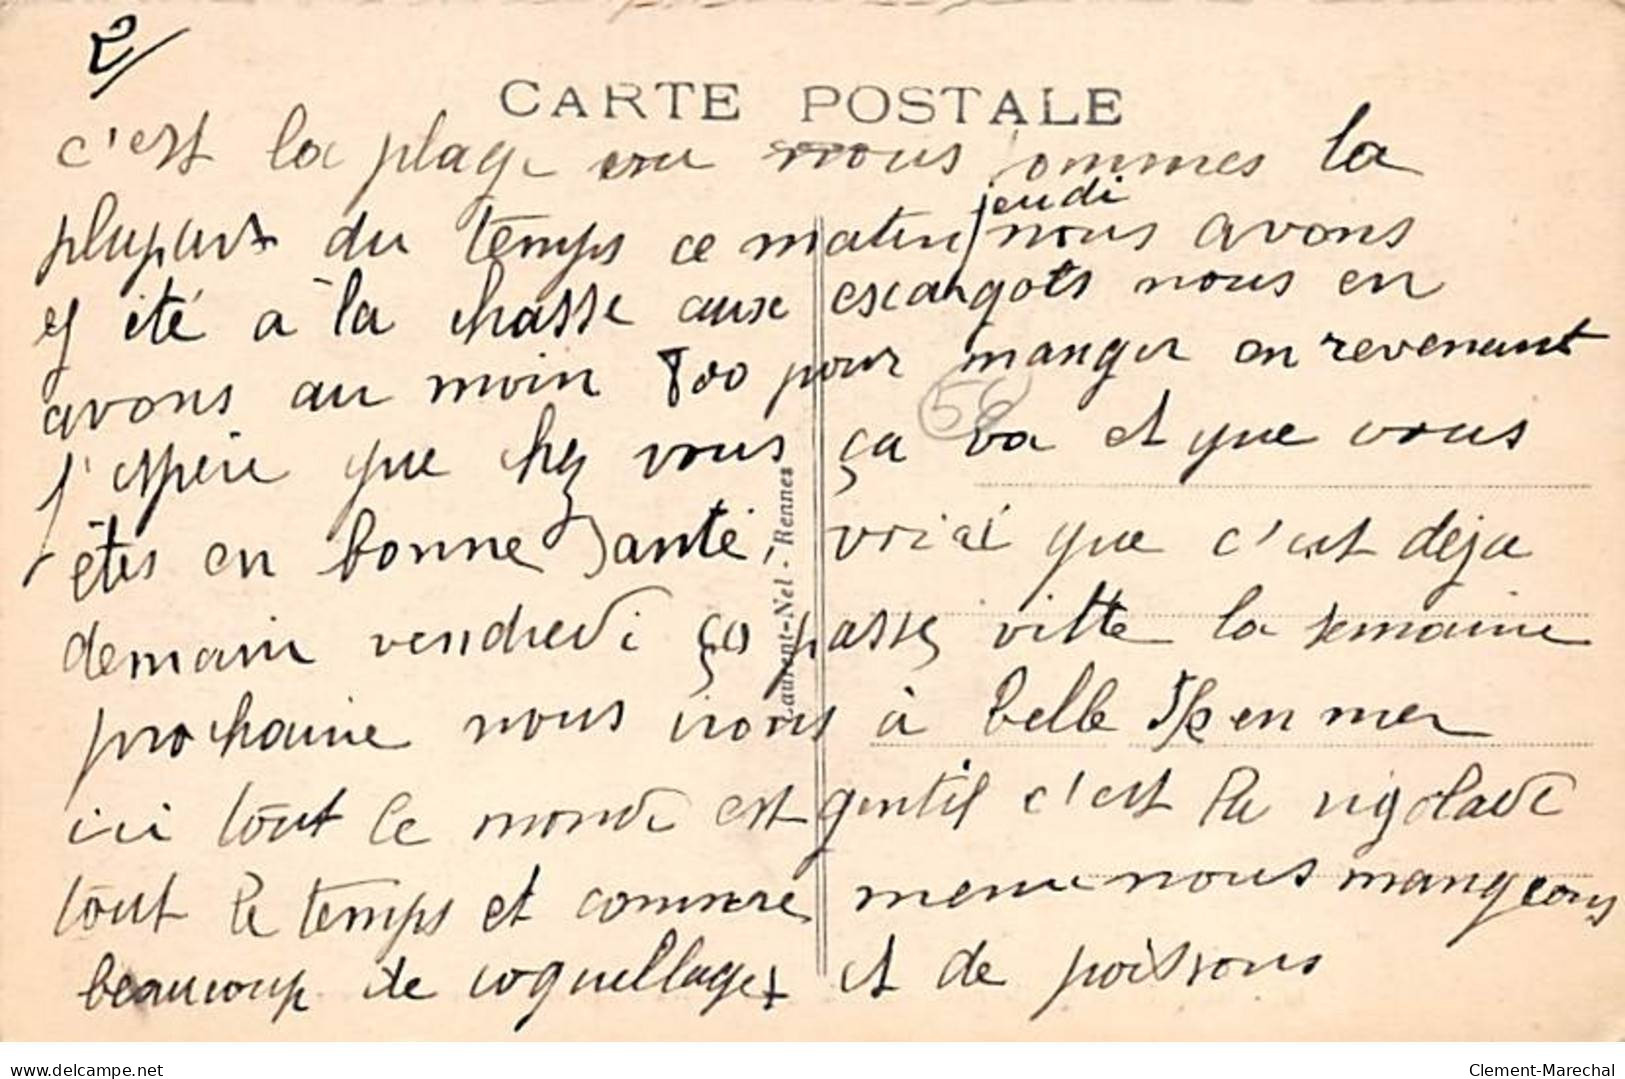 2/
CARTE POSTALE
c'est la plage ou nous sommes la
plupart du temps ce matin jeudi nous avons
ÿ été a la chasse aux escargots nous en
avons au moin 800 pour manger en revenant
j'espère que chez vous ça va et que vous
êtes en bonne santé, que c'est déja
demain vendredi ça passe vitte la semaine
prochaine nous irons à belle Ile en mer
ici tout le monde est gentil c'est la rigolade
tout le temps et comme menu nous mangeons
beaucoup de coquillages et de poissons
56
Laurent-Nel - Rennes
delcampe.net
Clement-Marechal